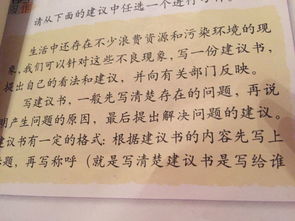 请从下面的建议中任选一个进行
生活中还存在不少浪费资源和污染环境的现
象,我们可以针对这些不良现象,写一份建议书,
提出自己的看法和建议,并向有关部门反映。
写建议书,一般先写清楚存在的问题,再说
明产生问题的原因,最后提出解决问题的建议。
建议书有一定的格式:根据建议书的内容先写上
标题,再写称呼(就是写清楚建议书是写给谁